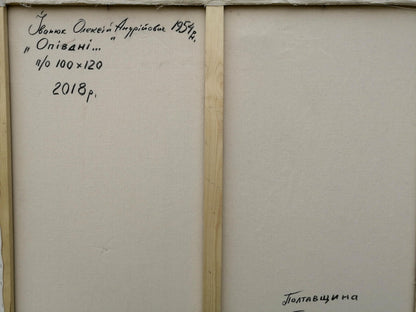 Івонюк Олексій Андрійович 1954р.н.
„Опівдні..."
п/о 100×120
2018р.
Полтавщина